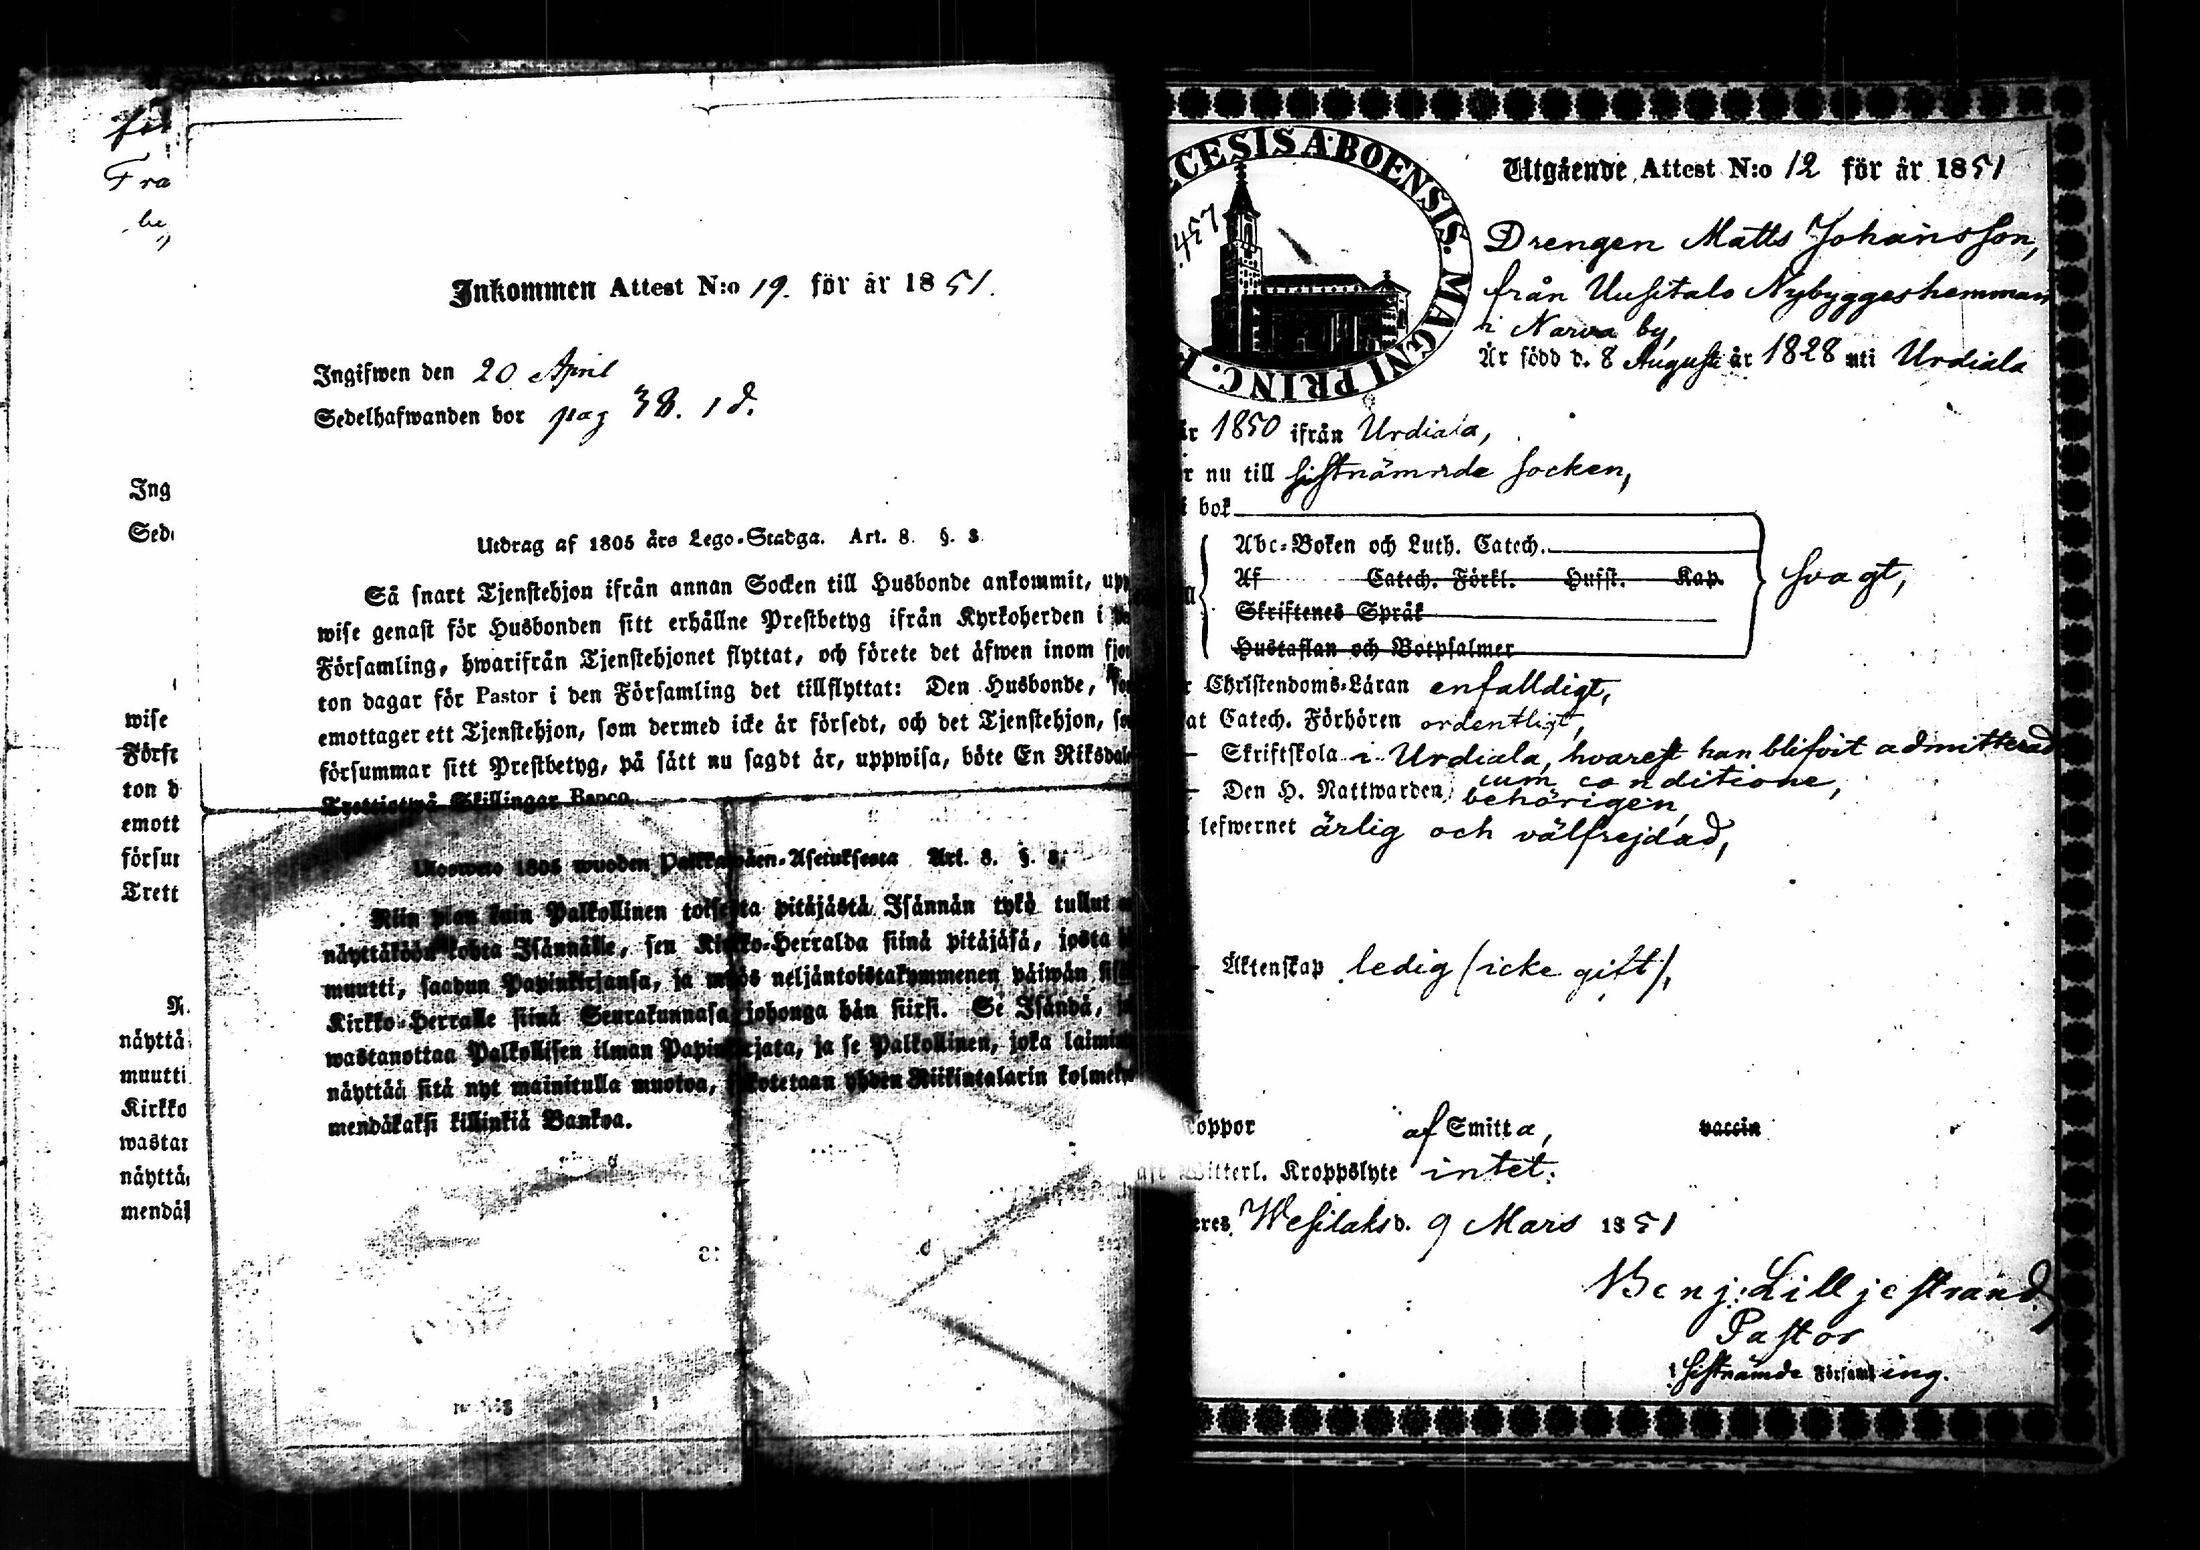 fil
Fra
by
Ing
Sede
wise
Förs
ton d
emott
försu
Trett
N
näyttä
muutti
Kirkko
wastan
näyttä
mendäk
Inkommen Attest N:o 19. för år 1851.
Ingifwen den 20 April
Sedelhafwanden bor pag 38. 1 d.
Utdrag af 1805 års Lego-Stadga. Art. 8. §. 3.
Så snart Tjenstehjon ifrån annan Socken till Husbonde ankommit, upp
wise genast för Husbonden sitt erhållne Prestbetyg ifrån Kyrkoherden i
Församling, hwarifrån Tjenstehjonet flyttat, och förete det äfwen inom fjor
ton dagar för Pastor i den Församling det tillflyttat: Den Husbonde, som
emottager ett Tjenstehjon, som dermed icke är försedt, och det Tjenstehjon, som
försummar sitt Prestbetyg, på sätt nu sagdt är, uppwisa, böte En Riksdaler
Trettiotwå Skillingar Banco.
Uloswето 1805 wuoden Palkkawäen-Asetuksesta Art. 8. §. 3.
Niin pian kuin Palkollinen toisesta pitäjästä Isännän tykö tullut
näyttäköön kohta Isännälle, sen Kirkko-Herralda siinä pitäjäsä, josta
muutti, saadun Papinkirjansa, ja myös neljäntoistakymmenen päiwän sis
Kirkko-Herralle siinä Seurakunnasa johonga hän siirsi. Se Isändä,
wastanottaa Palkollisen ilman Papinkirjata, ja se Palkollinen, joka laimin
näyttää sitä nyt mainitulla muotoa, sakotetaan yhden Riikintalarin kolmekym
mendäkaksi killinkiä Bankoa.
CESIS ABOENSIS. MAGNI PRINC. F
Utgående Attest N:o 12 för år 1851
Drengen Matts Johansson,
från Uusitalo Nybyggeshemman
i Narva by,
Är född d. 8 Augusti år 1828 uti Urdiala
år 1850 ifrån Urdiala,
r nu till sistnämnde socken,
i bok
Abc-Boken och Luth. Catech.
Af Catech. Förkl. Husst. Kap.
Skriftenes Språk
Hustaflan och Botpsalmer
svagt,
r Christendoms-Läran enfalldigt,
at Catech. Förhören ordentligt,
Skriftskola i Urdiala, hvarest han blifvit admitterad
cum conditione,
Den H. Nattwarden behörigen,
lefwernet ärlig och välfrejdad,
Äktenskap ledig (icke gift),
Koppor af Smitta, vaccin
Witterl. Kroppslyte intet.
eres Wesilaks d. 9 Mars 1851
Benj: Lilljestrand
Pastor
i sistnämde Församling.